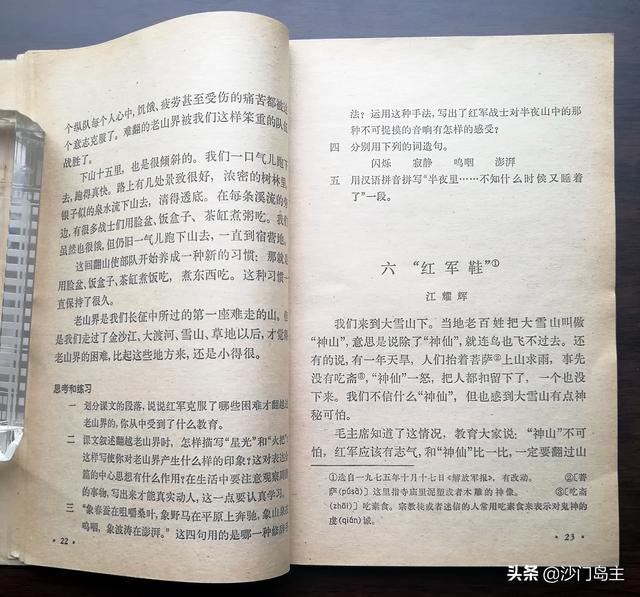 个纵队每个人心中,饥饿、疲劳甚至受伤的痛苦都被这
个意志克服了。难翻的老山界被我们这样笨重的队伍
战胜了。
下山十五里,也是很倾斜的。我们一口气儿跑下
去,跑得真快。路上有几处景致很好,浓密的树林里,
银子似的泉水流下山去,清得透底。在每条溪流的旁
边,有很多战士们用脸盆、饭盒子、茶缸煮粥吃。我们
虽然也很饿,但仍旧一气儿跑下山去,一直到宿营地。
这回翻山使部队开始养成一种新的习惯:那就是
用脸盆、饭盒子、茶缸煮饭吃,煮东西吃。这种习惯一
直保持了很久。
老山界是我们长征中所过的第一座难走的山。但
是我们走过了金沙江、大渡河、雪山、草地以后,才觉得
老山界的困难,比起这些地方来,还是小得很。
思考和练习
一 划分课文的段落,说说红军克服了哪些困难才翻越
老山界的,你从中受到了什么教育。
二 课文叙述翻越老山界时,怎样描写“星光”和“火把”
这样写使你对老山界产生什么样的印象?这对表达全
篇的中心思想有什么作用?在生活中要注意观察周围
的事物,写出来才能真实动人,这一点要认真学习。
三 “象春蚕在咀嚼桑叶,象野马在平原上奔驰,象山泉在
呜咽,象波涛在澎湃。”这四句用的是哪一种修辞手
· 22 ·
法?运用这种手法,写出了红军战士对半夜山中的那
种不可捉摸的音响有怎样的感受?
四 分别用下列的词造句。
闪烁 寂静 呜咽 澎湃
五 用汉语拼音拼写“半夜里……不知什么时候又睡着
了”一段。
六 “红军鞋”①
江耀辉
我们来到大雪山下。当地老百姓把大雪山叫做
“神山”,意思是说除了“神仙”,就连鸟也飞不过去。还
有的说,有一年天旱,人们抬着菩萨②上山求雨,事先
没有吃斋③,“神仙”一怒,把人都扣留了,一个也没
下来。我们不信什么“神仙”,但也感到大雪山有点神
秘可怕。
毛主席知道了这情况,教育大家说:“神山”不可
怕,红军应该有志气,和“神仙”比一比,一定要翻过山
①选自一九七五年十月十七日《解放军报》,有改动。 ②〔菩
萨(púsà)〕这里指寺庙里泥塑或者木雕的神像。 ③〔吃斋
(zhāi)〕吃素食。宗教徒或者迷信的人常用吃素食来表示对鬼神的
虔(qián)诚。
· 23 ·
头条 @沙门岛主